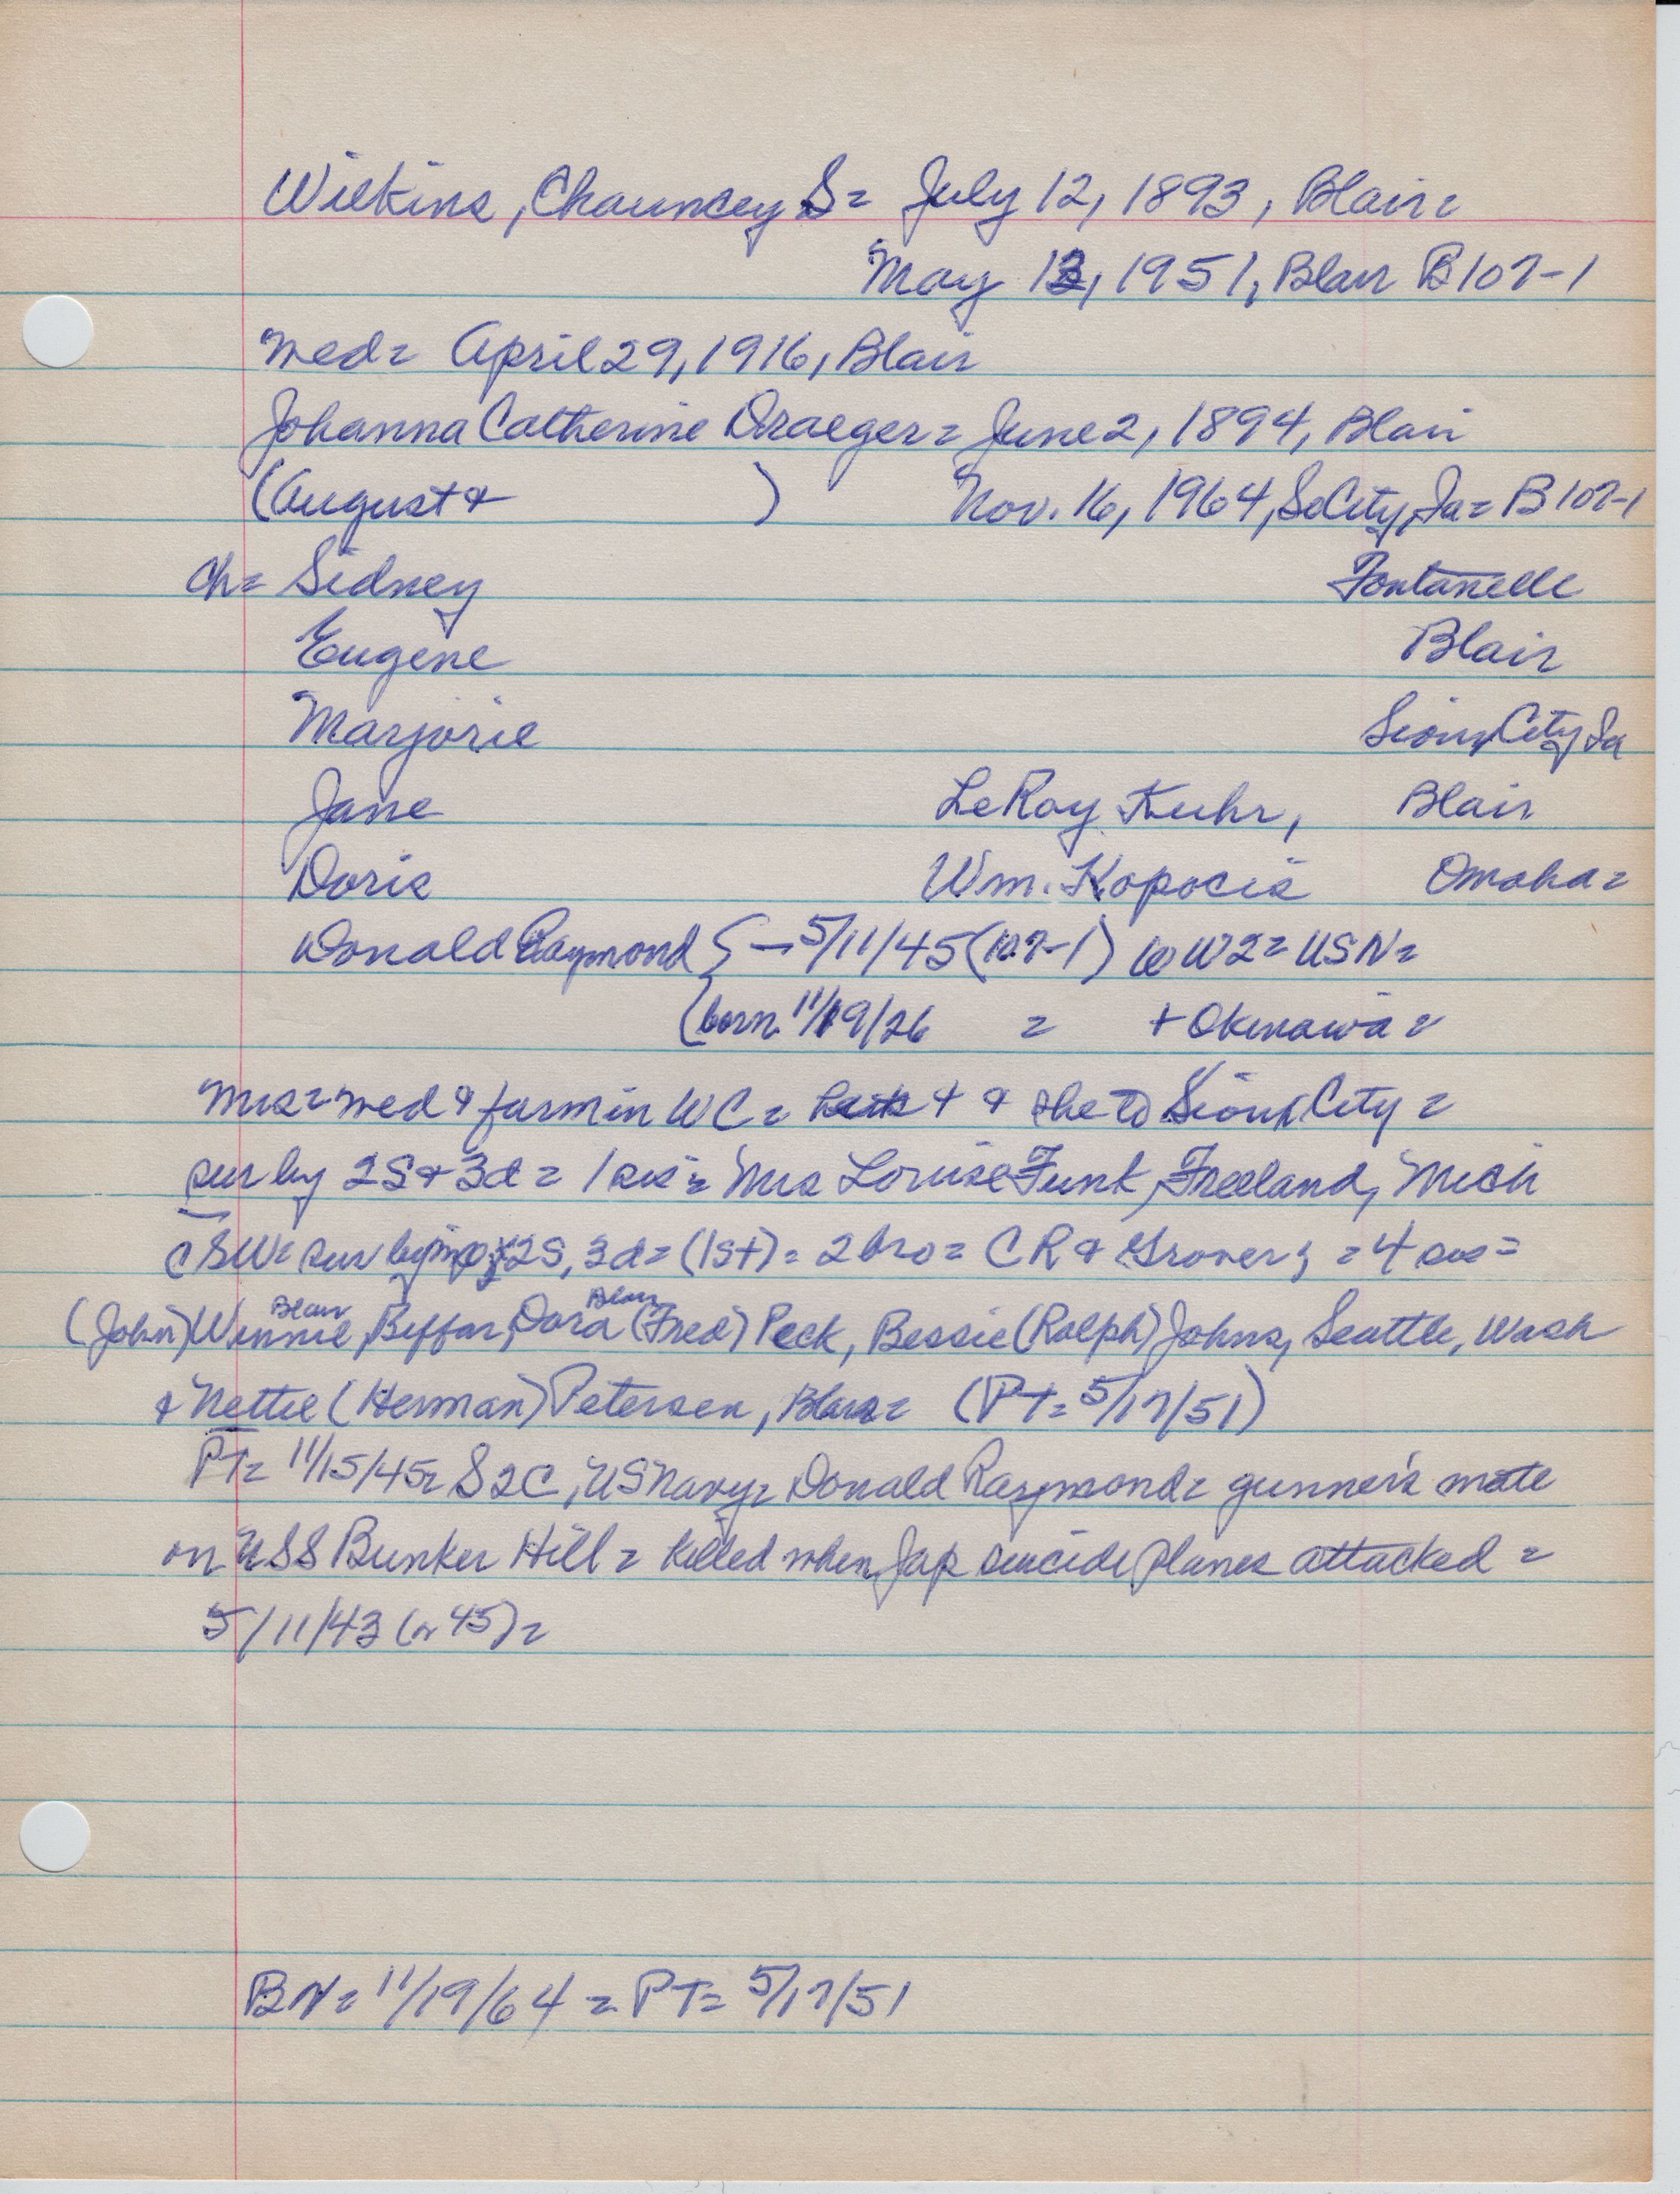 Wilkins, Chauncey S = July 12, 1893, Blair =
May 13, 1951, Blair B107-1
med = April 29, 1916, Blair
Johanna Catherine Draeger = June 2, 1894, Blair
(August & ) Nov. 16, 1964, So City, Ia = B107-1
ch = Sidney Fontanelle
Eugene Blair
Marjorie Sioux City Ia
Jane LeRoy Kuhr, Blair
Doris Wm. Kopocis Omaha =
Donald Raymond { — 5/11/45 (107-1) WW2 = USN =
(born 11/19/26 = + Okinawa =
Mrs = med & farm in WC = + & she to Sioux City =
sur by 2S & 3d = 1 sis = Mrs Louise Funk, Freeland, Mich
CSW = sur by 2S, 3d = (1S+) = 2 bro = CR & Grover; = 4 sis =
(John) Winnie Blair, Beffar, Dora Blair (Fred) Peck, Bessie (Ralph) Johns, Seattle, Wash
& Nettie (Herman) Petersen, Blair = (PT = 5/17/51)
PT = 11/15/45 = S2C, US Navy = Donald Raymond = gunner's mate
on USS Bunker Hill = killed when Jap suicide planes attacked =
5/11/43 (or 45) =
BN = 11/19/64 = PT = 5/17/51